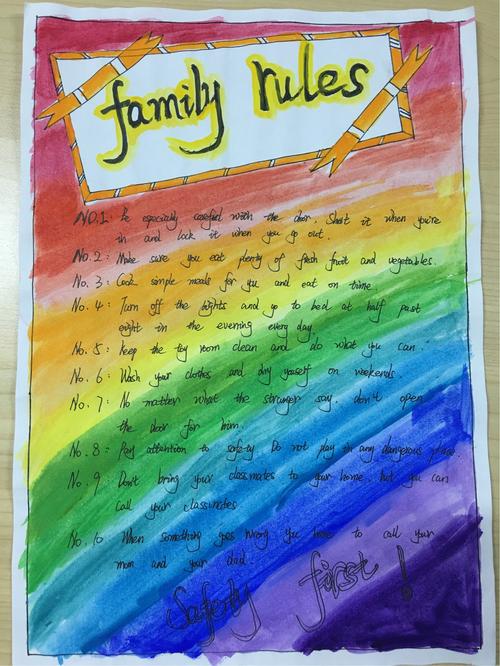 family rules
NO.1: Be especially careful with the door. Shut it when you're
in and lock it when you go out.
No.2: Make sure you eat plenty of fresh fruit and vegetables.
No.3: Cook simple meals for you and eat on time.
No.4: Turn off the lights and go to bed at half past
eight in the evening every day.
No.5: keep the toy room clean and do what you can.
No.6: Wash your clothes and dry yourself on weekends.
No.7: No matter what the stranger say, don't open
the door for him.
No.8: Pay attention to safety. Do not play in any dangerous place.
No.9: Don't bring your classmates to your home, but you can
call your classmates
No.10 When something goes wrong you have to call your
mom and your dad.
Saferly first!